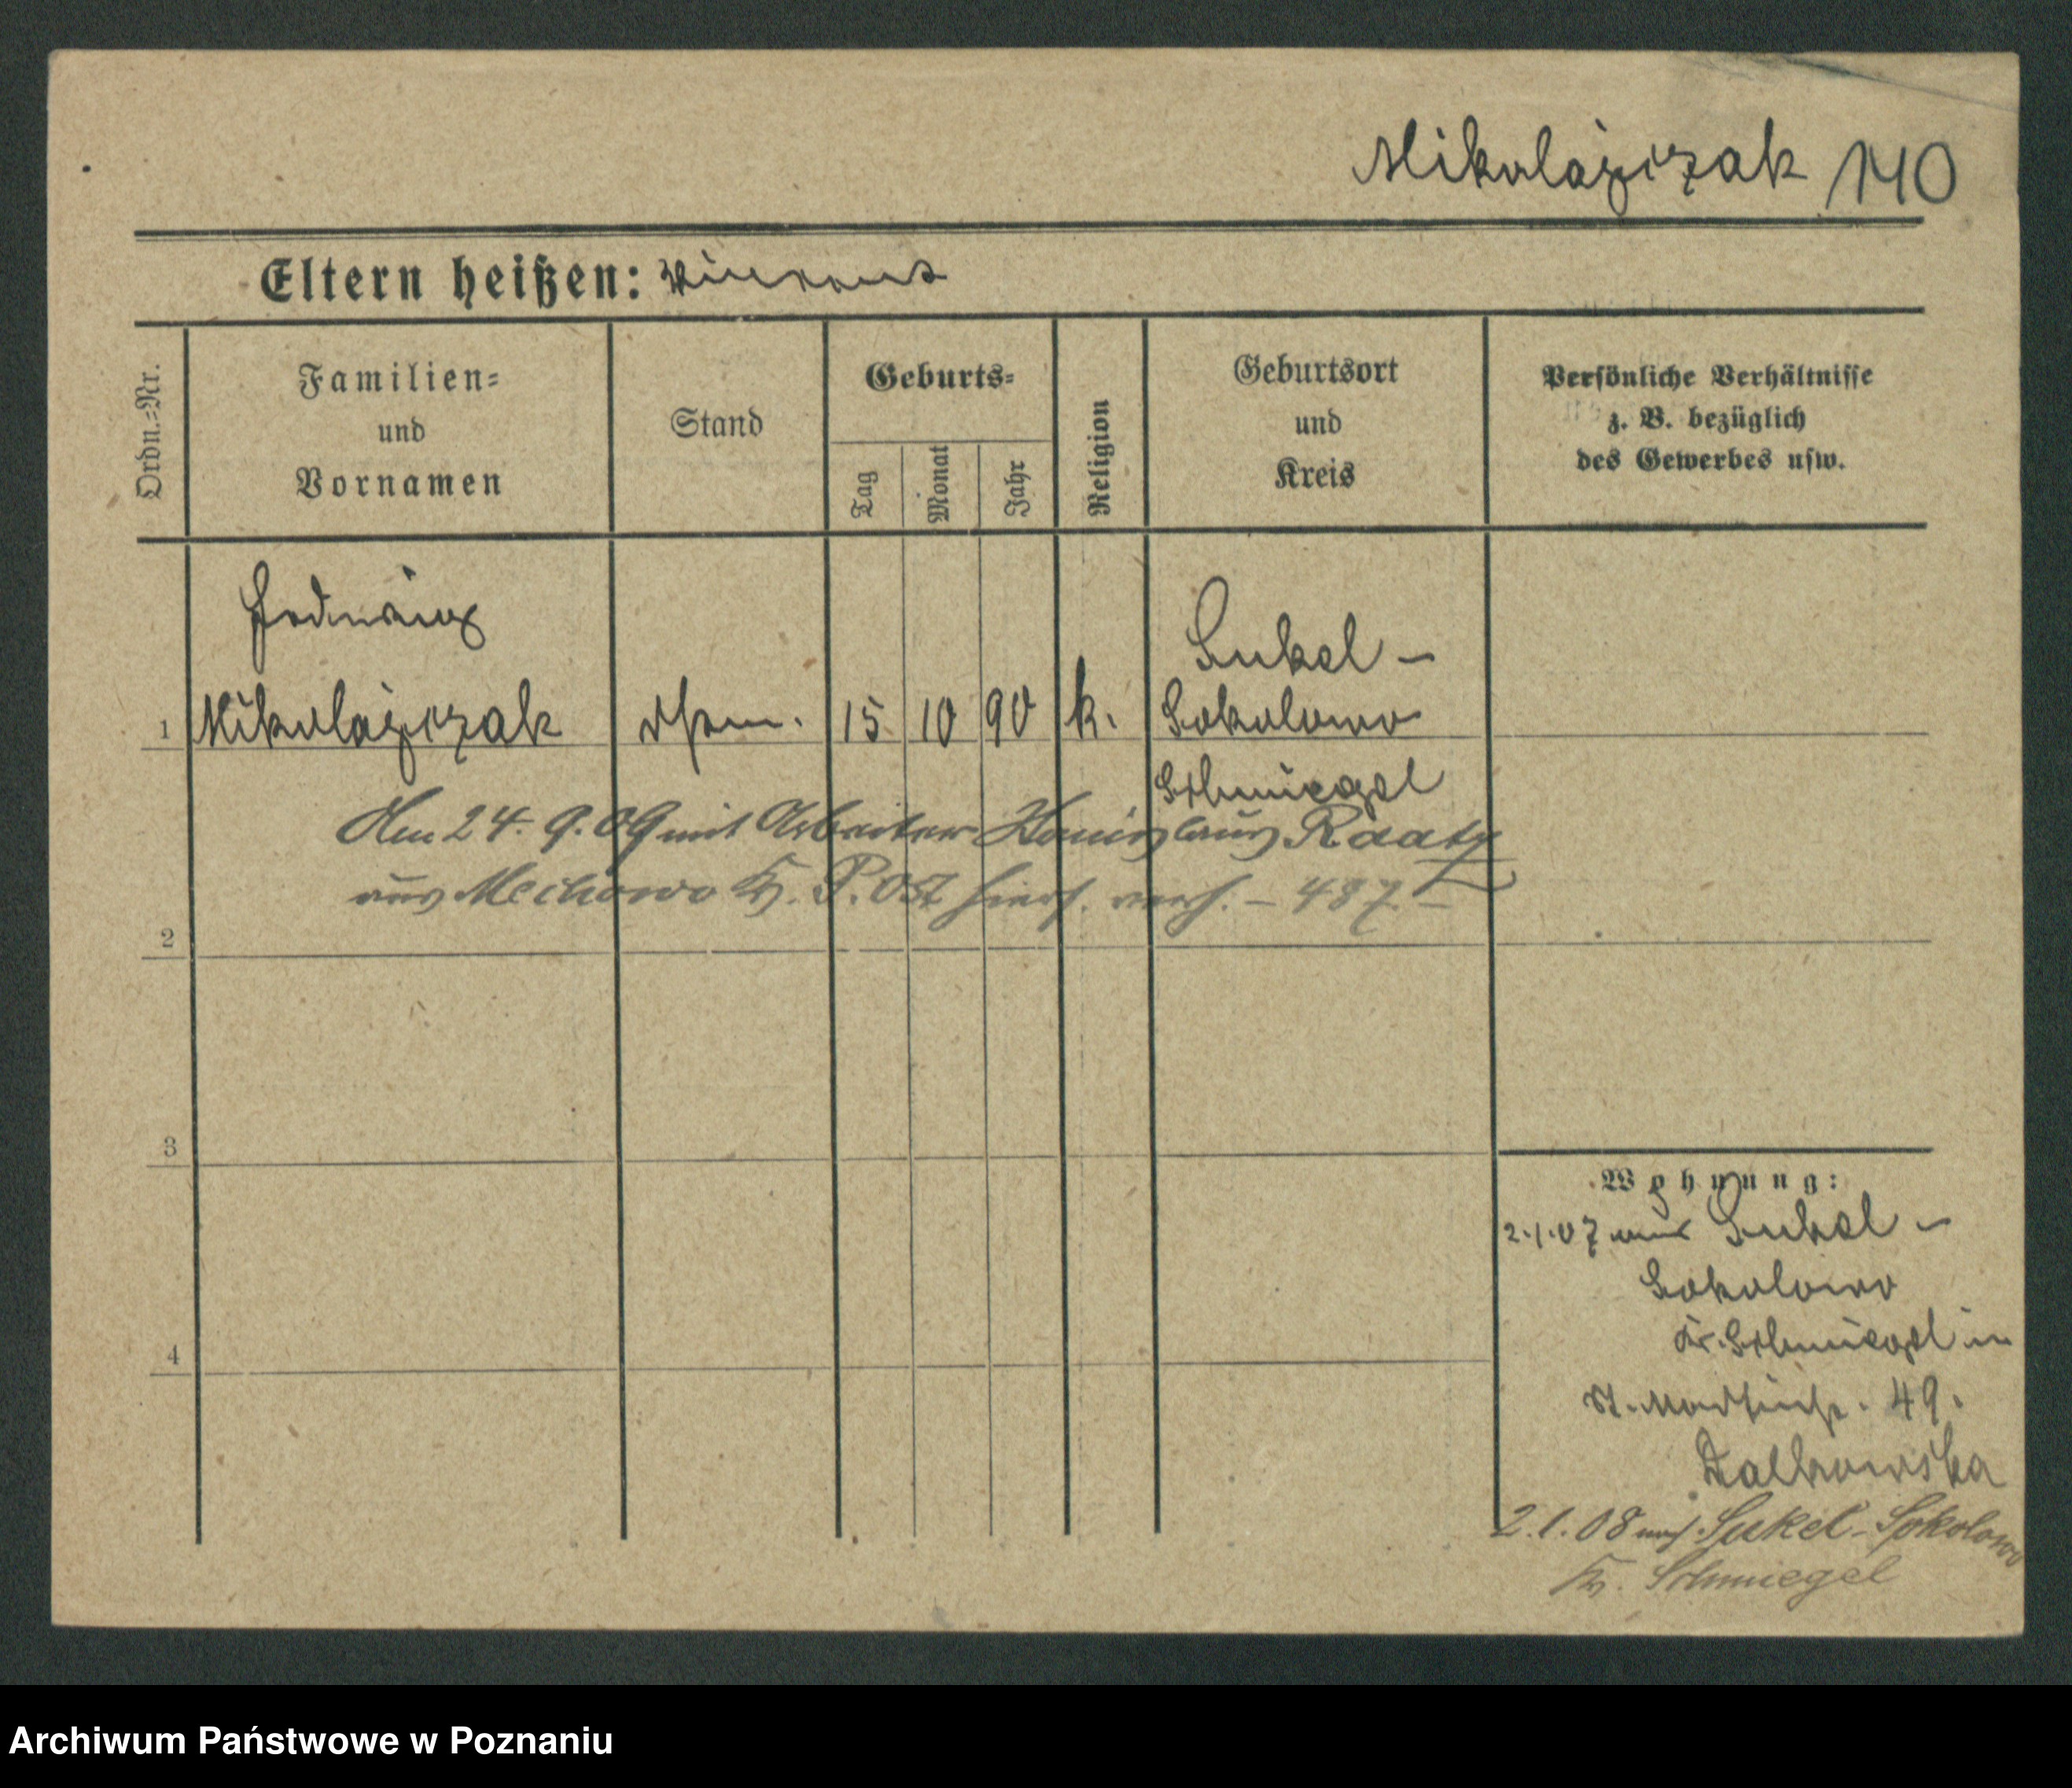 Mikolajczak 140
Eltern heißen: Vincent
Ordn.-Nr.
Familien-
und
Vornamen
Stand
Geburts-
Tag
Monat
Jahr
Religion
Geburtsort
und
Kreis
Persönliche Verhältnisse
z. B. bezüglich
des Gewerbes usw.
Hedwig
Sukel –
1 Mikolajczak 15 10 90 k. Sokolowo
Schmiegel
Am 24. 9. 09 mit Arbeiter Raatz
aus Mechowo Kr. P. Ost hiers. verh. – 487. –
2
3
4
Wohnung:
2.1.07 aus Sukel –
Sokolowo
Kr. Schmiegel in
St. 49.
Dalkowska
2.1.08 nach Sukel-Sokolowo
Kr. Schmiegel
Archiwum Państwowe w Poznaniu